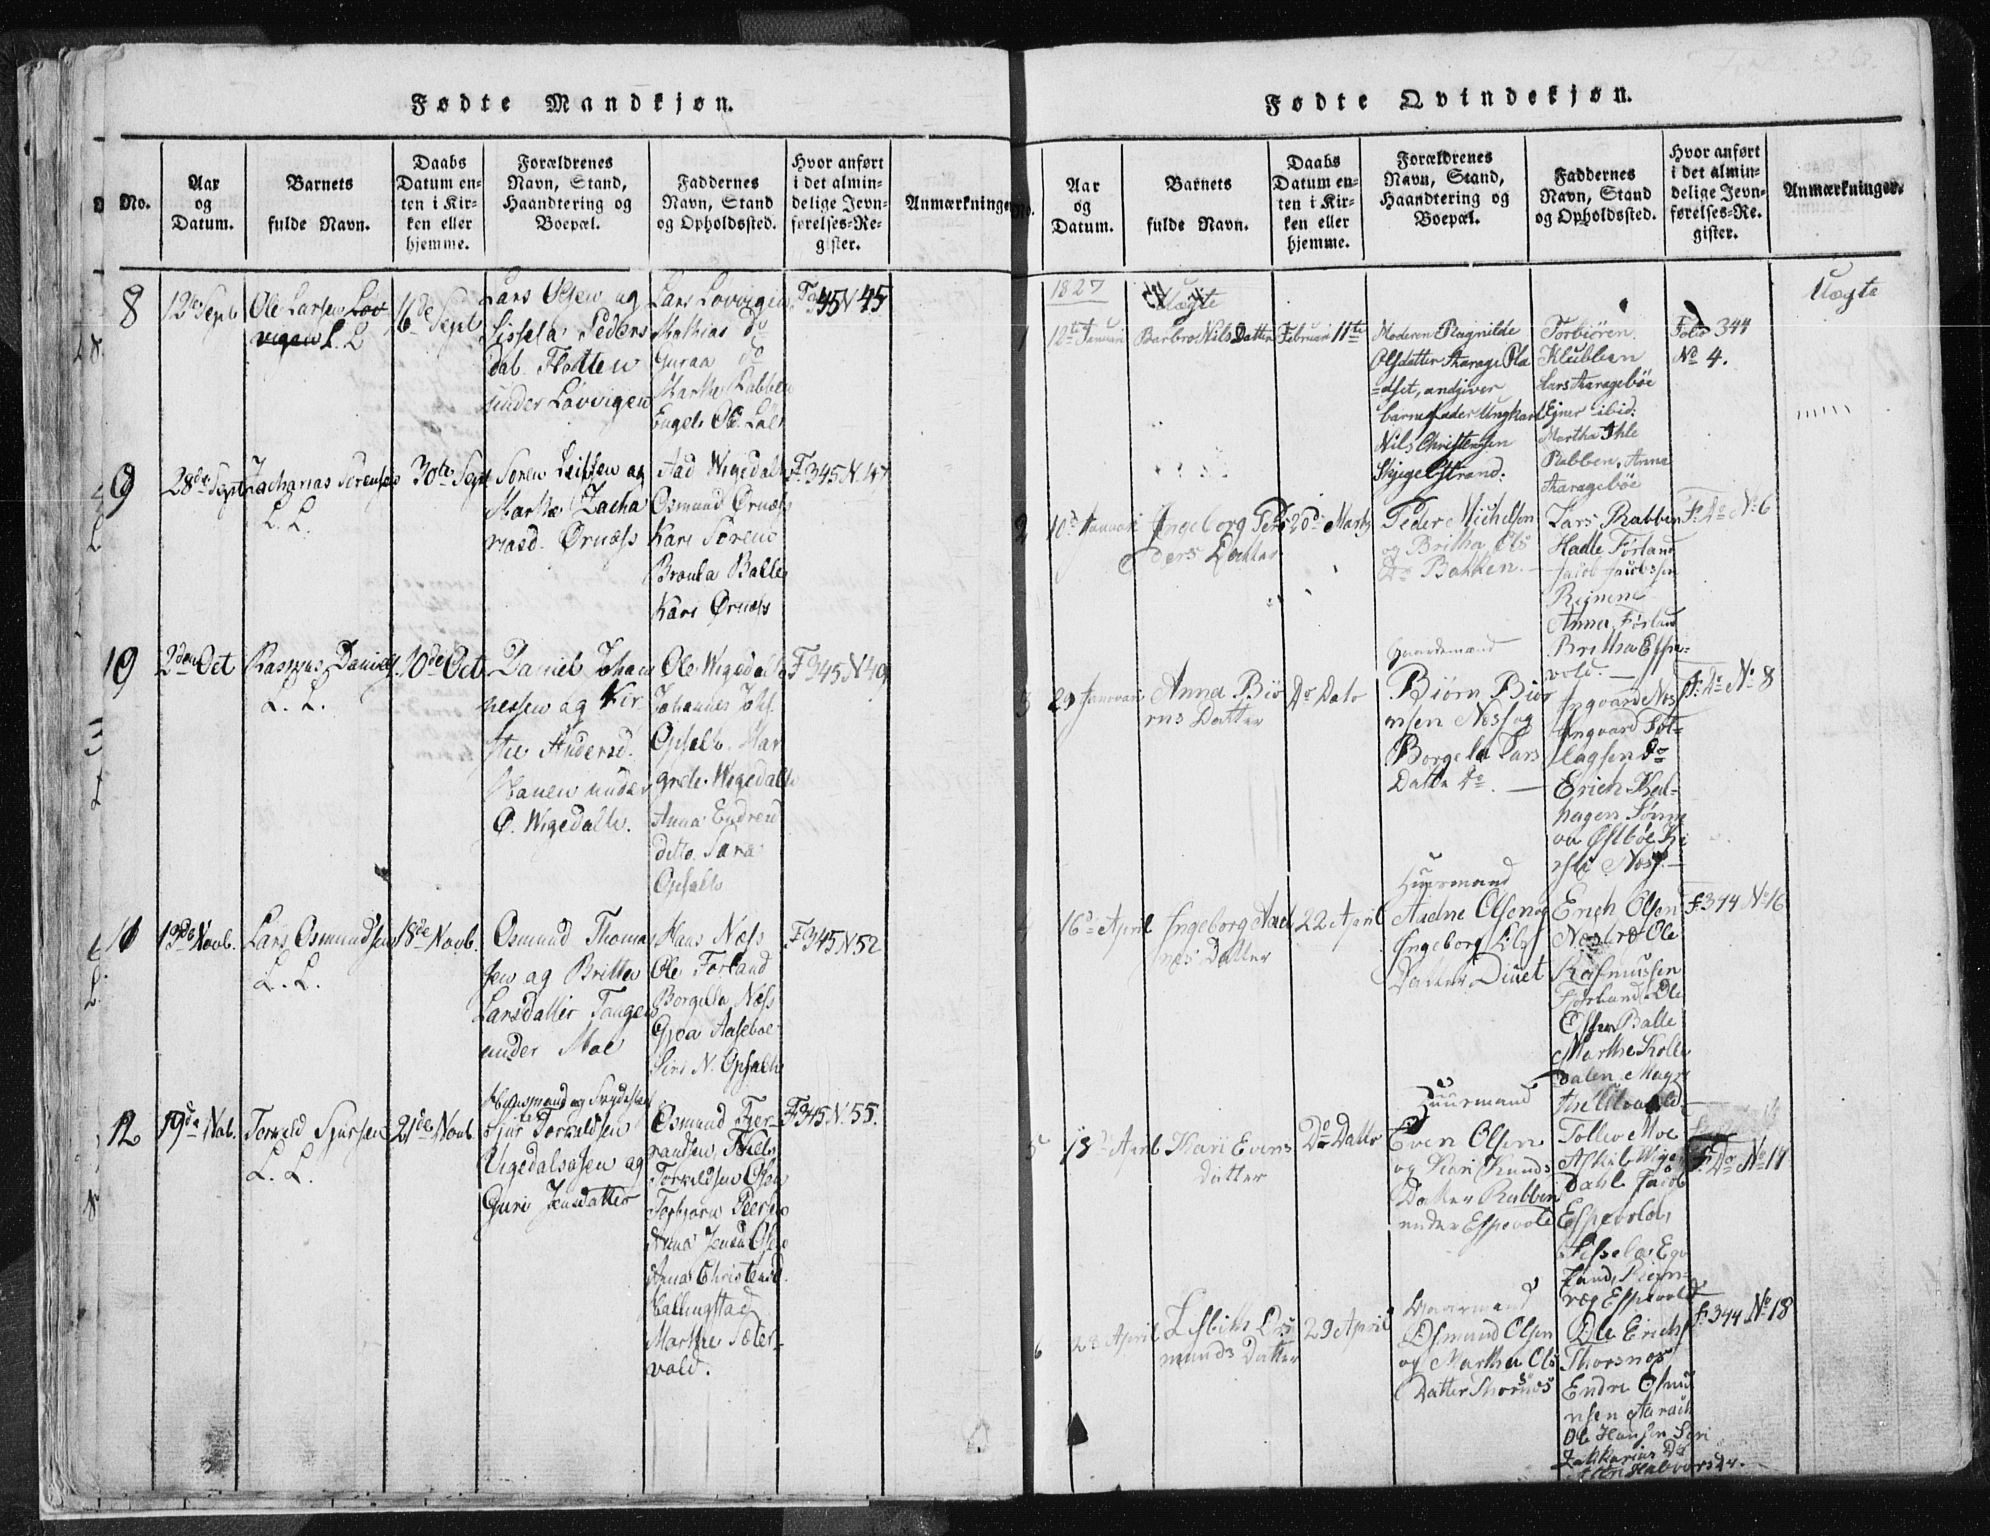 Fødte Mandkjøn.
No.
Aar
og
Datum.
Barnets
fulde Navn.
Daabs
Datum en-
ten i Kir-
ken eller
hjemme.
Forældrenes
Navn, Stand,
Haandtering og
Boepæl.
Faddernes
Navn, Stand
og Opholdssted.
Hvor anført
i det almin-
delige Jevn-
førelses-Re-
gister.
Anmærkninger
8
12de Sept
Ole Larsen Løv
vigen L. L
16de Sept
Lars Olsen og
Sissela Peders
dat. Flotten
under Løvvigen
Lars Lovvigen
Mathias do
Guraa do
Marthe Labben
Engel Ole
45 N 45
9
28de Sept
Zacharias Sørensen
L. L.
30te Sept
Søren Leifsen og
Marthe Zacha
riasd. Ørnæss
Aad Wigedahl
Osmund Ørnæss
Kari Sørens
Bronla Balle
Kari Ørnæss
F 345 N 47
10
2den Oct
Rasmus Daniels
L. L.
10de Oct
Daniel Johan
nessen og Kir
stie Andersd.
Hauen under
Ø. Wigedahl.
Ole Wigedahl
Johannes Johs.
Opsahl. Mar
grete Wigedahl
Anna Endred
ditto. Sara
Opsahl
F 345 N 49
11
13de Novb.
Lars Osmundsen
L. L.
18de Novb.
Osmund Thoma
sen og Britte
Larsdatter Tangen
under Moe
Hans Næss
Ole Forland
Borgilla Næss
Gjoa Aaseboe
Siri N. Opsahl
F 345 N 52
12
19de Nov.
Torveld Sjursen
L. L.
21de Novb.
Huusmand og
Sjur Torveldsen
Vigedalsaasen og
Guri Jensdatter
Osmund Tor-
Niels
Torveldsen
Torbjørn Peers
Anna Jensd
Anna Christensd.
Hallingstad
Marthe Sæter-
vold.
F 345 N. 55.
Fødte Qvindekjøn.
No.
Aar
og
Datum.
Barnets
fulde Navn.
Daabs
Datum en-
ten i Kir-
ken eller
hjemme.
Forældrenes
Navn, Stand,
Haandtering og
Boepæl.
Faddernes
Navn, Stand
og Opholdssted.
Hvor anført
i det almin-
delige Jevn-
førelses-Re-
gister.
Anmærkninger.
1827
Uægte
1
12te Januari
Barbro Nils Datter
Februari 11te
Moderen Ragnilde
Olsdatter Aarage Pla
-dset, andgiver
barnefader Ungkarl
Nils Christensen
Skjegelstrand.
Torbiören
Klubben
Lars Aaragebøe
Ejner ibid:
Martha Ihle
Rabben, Anna
Aaragebøe
Folio 344
No 4.
Uægte
2
10de Januari
Ingeborg Pe
ders Datter
20de Marts
Peder Michelson
og Britha Ols
Dr Bakken.
Lars Rabben
Halle Førland
Jacob Jacobsen
Reinene
Anna Førland
Britha Espe-
vold.
F. do No 6
3
29 Januari
Anna Biö
rns Datter
Do Dato
Gaardmand
Biörn Biör
nsen Næss og
Borgela Lars
Datter do.
Ingvard Næs
Ingvard Tol-
lagsen do
Erich Kal-
hagen Sønne
va Østbøe Ki
rsti Næss.
F. do No 8
4
16de April
Ingeborg Aad
nes Datter
22 April
Huusmand
Aadne Olsen og
Ingeborg Eilefs
Datter Diuet
Erich Olsen
Næsbrø Ole
Rasmussen
Førland Ole
Olsen Balle
Marthe Kolle
dalen Magre
the
F. 344 No 16
5
18de April
Kari Evens
Datter
Do Datto
Huusmand
Even Olsen
og Kari Knuds
Datter Rabben
under Espevold
Tollev Moe
Askil Wige
Dahl Jacob
Espevold,
Sissela Eg
land, Ragn-
reg Espevold
F. do No 17
6
23 April
Lisbith Os
munds Datter
29 April
Gaarmand
Osmund Olsen
og Martha Ols
Datter Thorsnes
Ole Erichs
Thorsnes
Endre Osmu
nsen Aarach
Ole Hansen Siri
Zakkarias Dr
Halvors Dr.
F. 344 No 18